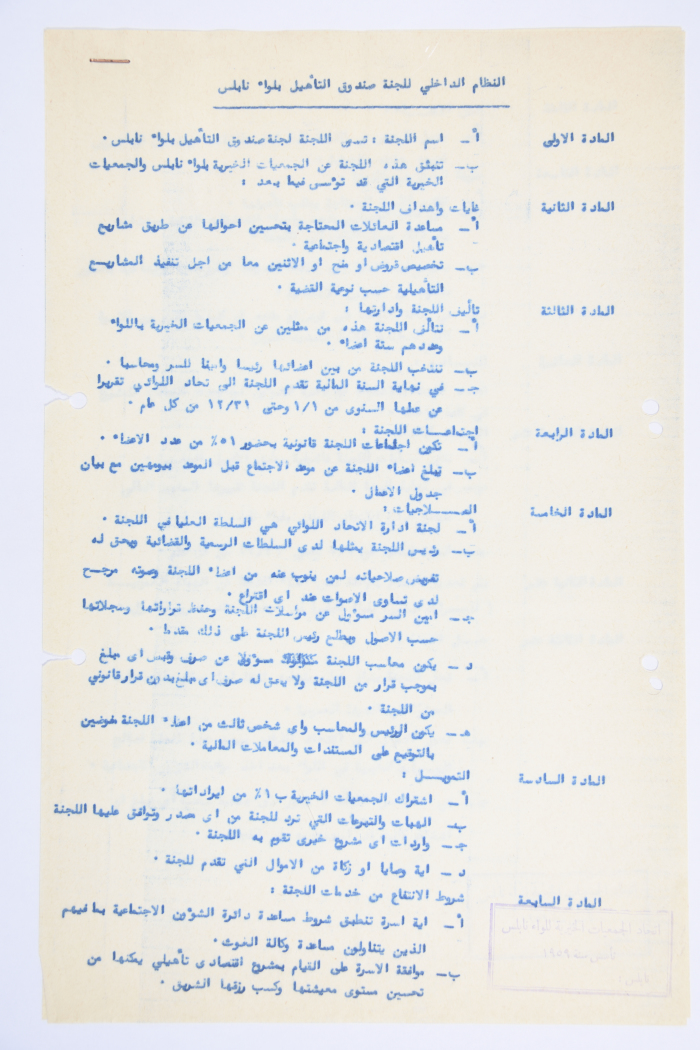 النظام الداخلي للجنة صندوق التأهيل بلواء نابلس
المادة الاولى أ ـ اسم اللجنة : تسمى اللجنة لجنة صندوق التأهيل بلواء نابلس .
ب ـ تنبثق هذه اللجنة عن الجمعيات الخيرية بلواء نابلس والجمعيات
الخيرية التي قد تؤسس فيما بعد :
المادة الثانية غايات واهداف اللجنة .
أ ـ مساعدة العائلات المحتاجة بتحسين احوالها عن طريق مشاريع
تأهيل اقتصادية واجتماعية .
ب ـ تخصيص قروض او منح او الاثنين معا من اجل تنفيذ المشاريع
التأهيلية حسب نوعية القضية .
المادة الثالثة تأليف اللجنة وادارتها :
أ ـ تتألف اللجنة هذه من ممثلين عن الجمعيات الخيرية باللواء
وعددهم ستة اعضاء .
ب ـ تنتخب اللجنة من بين اعضائها رئيسا وامينا للسر ومحاسبا .
جـ ـ في نهاية السنة المالية تقدم اللجنة الى تحاد اللوائي تقريرا
عن عملها السنوى من ١/١ وحتى ١٢/٣١ من كل عام .
المادة الرابعة اجتماعات اللجنة :
أ ـ تكون اجتماعات اللجنة قانونية بحضور ٥١٪ من عدد الاعضاء .
ب ـ تبلغ اعضاء اللجنة عن موعد الاجتماع قبل الموعد بيومين مع بيان
جدول الاعمال .
المادة الخامسة الصلاحيات :
أ ـ لجنة ادارة الاتحاد اللوائي هي السلطة العليا في اللجنة .
ب ـ رئيس اللجنة يمثلها لدى السلطات الرسمية والقضائية ويحق له
تفويض صلاحياته لمن ينوب عنه من اعضاء اللجنة وصوته مرجح
لدى تساوى الاصوات عند اى اقتراع .
جـ ـ امين السر مسؤول عن مراسلات اللجنة وحفظ قراراتها وسجلاتها
حسب الاصول ويطلع رئيس اللجنة على ذلك مقدما .
د ـ يكون محاسب اللجنة مسؤولا عن صرف وقبض اى مبلغ
بموجب قرار من اللجنة ولا يحق له صرف اى مبلغ بدون قرار قانوني
من اللجنة .
هـ ـ يكون الرئيس والمحاسب واى شخص ثالث من اعضاء اللجنة مفوضين
بالتوقيع على المستندات والمعاملات المالية .
المادة السادسة التمويل :
أ ـ اشتراك الجمعيات الخيرية ب ١٪ من ايراداتها .
ب ـ الهبات والتبرعات التي ترد للجنة من اى مصدر وتوافق عليها اللجنة
جـ ـ واردات اى مشروع خيرى تقوم به اللجنة .
د ـ اية وصايا او زكاة من الاموال التي تقدم للجنة .
المادة السابعة شروط الانتفاع من خدمات اللجنة :
أ ـ اية اسرة تنطبق شروط مساعدة دائرة الشؤون الاجتماعية بما فيهم
الذين يتناولون مساعدة وكالة الغوث .
ب ـ موافقة الاسرة على القيام بمشروع اقتصادى تأهيلي يمكنها من
تحسين مستوى معيشتها وكسب رزقها الشريف .